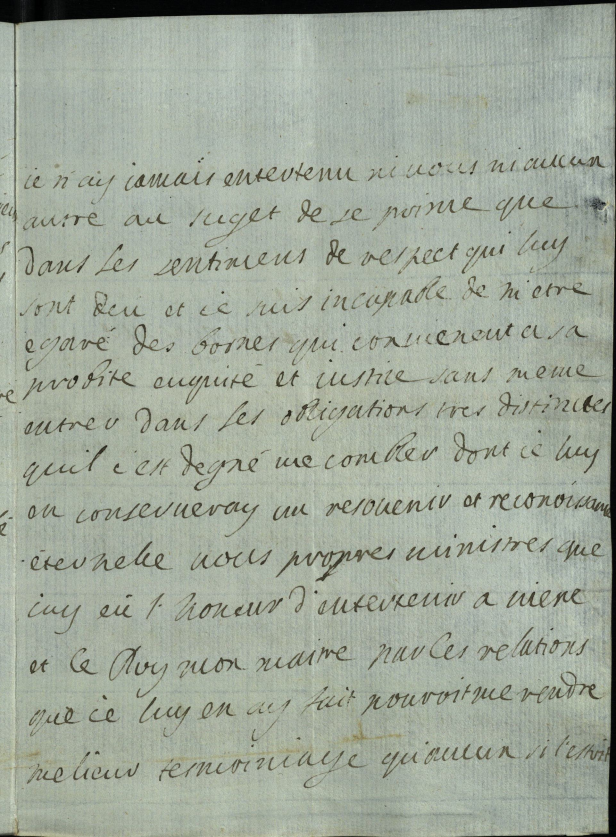 ie n'ay iamais entertenu ni vous ni aucun
autre au suget de se prince que
dans les sentimens de respect qui luy
sont deu et ie suis incapable de m'etre
egaré des bornes qui convienent a sa
probite enquité et iustise sans meme
entrer dans les obligations tres distinctes
quil c'est degné me combler dont ie luy
en conserveray un resouenir et reconoisance
éternelle vous propres ministres que
iay eü l'honeur d'entertenir a viene
et le Roy mon maitre par les relations
que ie luy en ay fait pouroit me rendre
melieur temoiniage qu'aucun si l'estoit